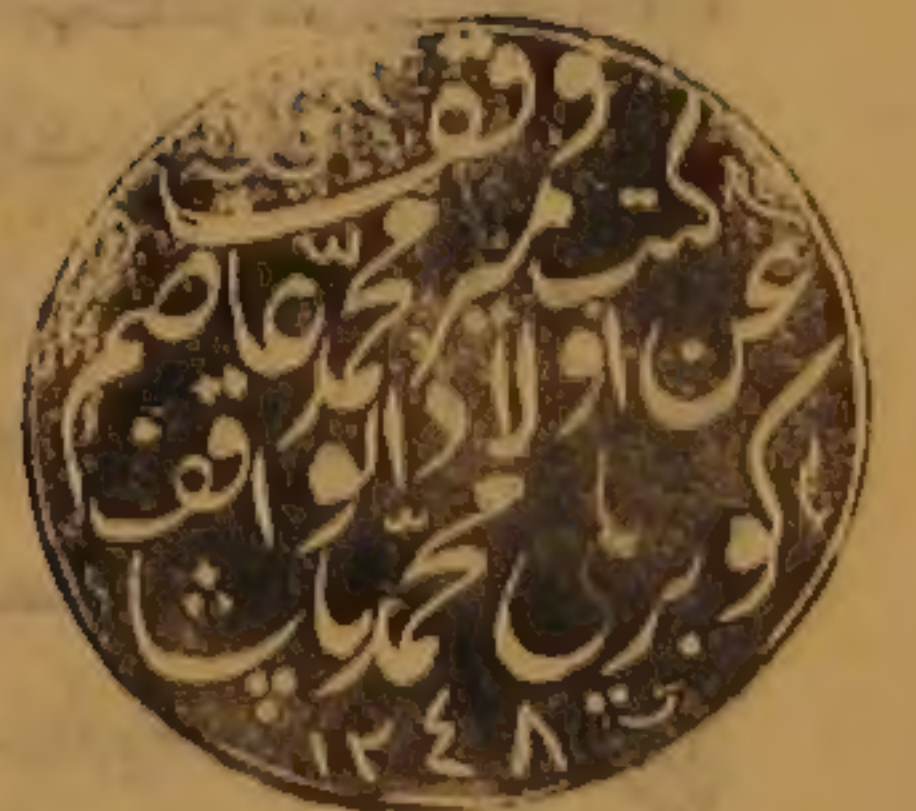 وقف
كتب مير محمد عاصم
عن اولاد الواقف
كوبريلى محمد پاشا
١٢٤٨